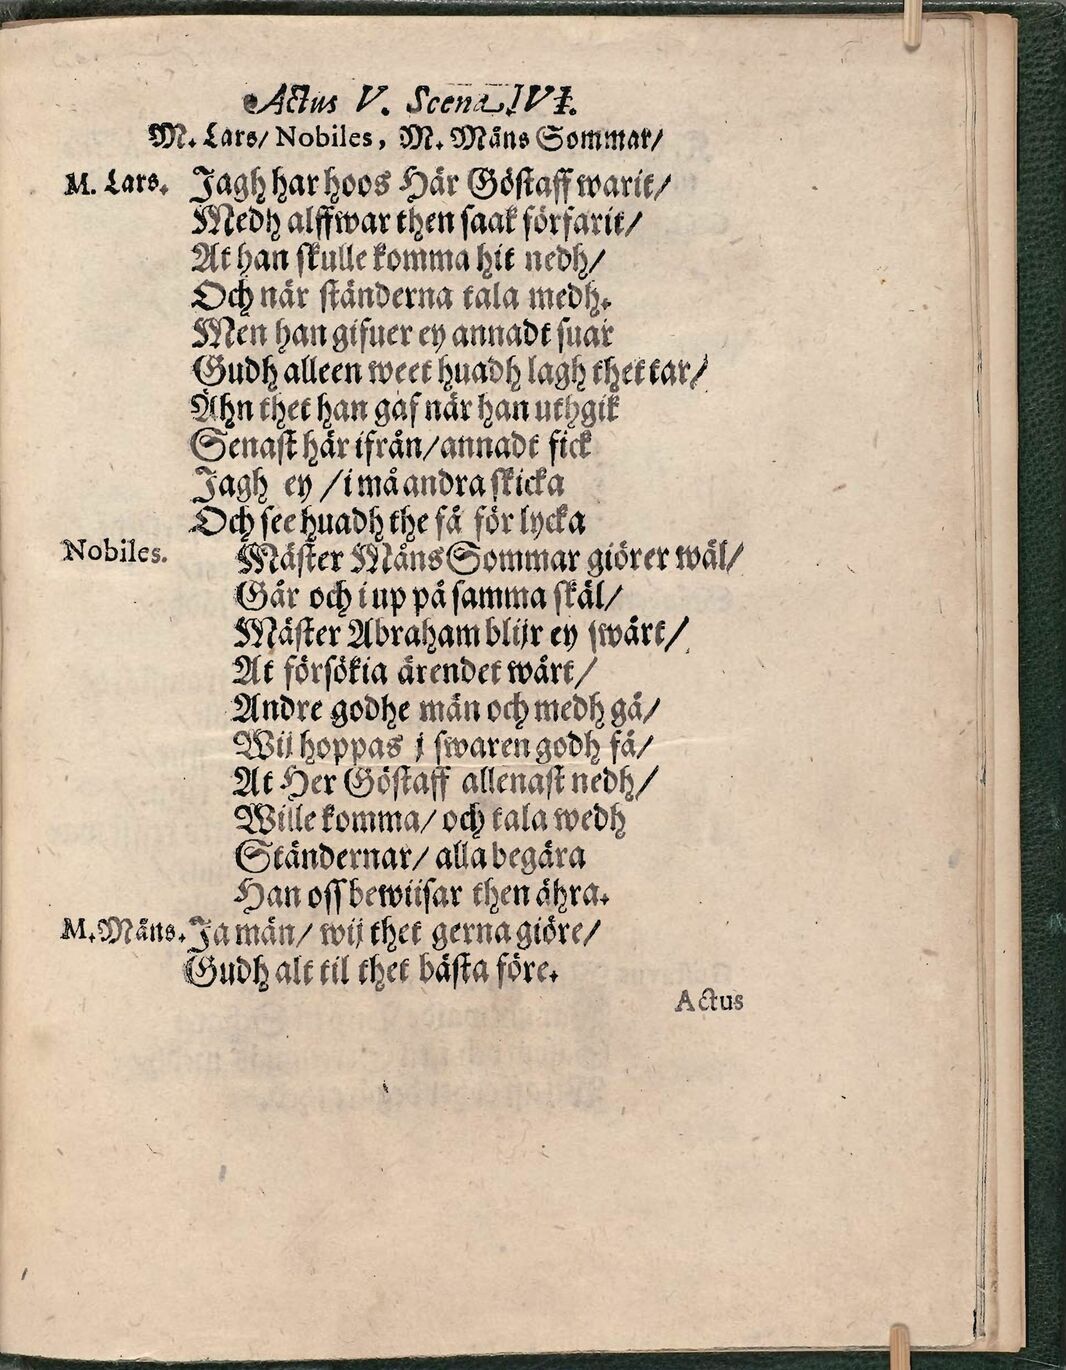 Actus V. Scena IVI.
M. Lars/ Nobiles, M. Måns Sommar/
M. Lars. Jagh har hoos Här Göstaff warit/
Medh alffwar then saak förfarit/
At han skulle komma hit nedh/
Och när ständerna tala medh.
Men han gifuer ey annadt suar
Gudh alleen weet huadh lagh thet tar/
Ähn thet han gaf när han uthgik
Senast här ifrån/ annadt fick
Jagh ey / i må andra skicka
Och see huadh the få för lycka
Nobiles. Mäster Måns Sommar giörer wäl/
Går och i up på samma skäl/
Mäster Abraham blijr ey swårt/
At försökia ärendet wårt/
Andre godhe män och medh gå/
Wij hoppas j swaren godh få/
At Her Göstaff allenast nedh/
Wille komma/ och tala wedh
Ständernar/ alla begära
Han oss bewiisar then ähra.
M. Måns. Ja män/ wij thet gerna giöre/
Gudh alt til thet bästa före.
Actus